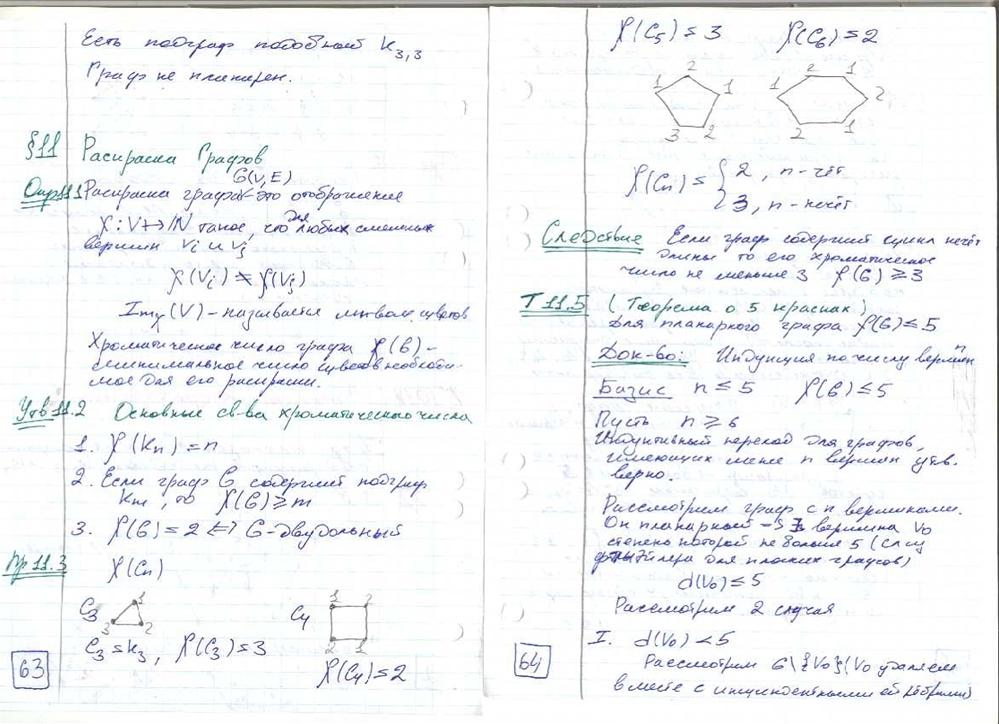 Есть подграф подобный K3,3
Граф не планарен.
§11 Раскраска Графов
G(V,E)
Опр 11.1 Раскраска графа - это отображение
χ: V↦ℕ такое, что для любых смежных
вершин Vi и Vj
χ(Vi) ≠ χ(Vj)
Imχ(V) - называется мн-вом цветов
Хроматическое число графа χ(G) -
минимальное число цветов необходи-
мое для его раскраски.
Утв 11.2 Основные св-ва хроматического числа
1. χ(Kn) = n
2. Если граф G содержит подграф
Km, то χ(G) ≥ m
3. χ(G) = 2 ⟺ G - двудольный
Пр 11.3 χ(Cn)
C3 1 3 2
C4 1 2 2 1
C3 = K3, χ(C3) = 3
χ(C4) = 2
63
χ(C5) = 3 χ(C6) = 2
1 2 1 3 2
1 2 1 2 2 1
χ(Cn) = { 2, n - чёт
3, n - нечёт
Следствие Если граф содержит цикл нечёт
длины то его хроматическое
число не меньше 3 χ(G) ≥ 3
Т 11.5 (Теорема о 5 красках)
Для планарного графа χ(G) ≤ 5
Док-во: Индукция по числу вершин n
Базис n ≤ 5 χ(G) ≤ 5
Пусть n ≥ 6
Индуктивный переход для графов,
имеющих мене n вершин утв.
верно.
Рассмотрим граф с n вершинами.
Он планарный => ∃ вершина V0
степень которой не больше 5 (след
Эйлера для плоских графов)
d(V0) ≤ 5
Рассмотрим 2 случая
I. d(V0) < 5
Рассмотрим G\{V0} (V0 удаляем
вместе с инцидентными ей рёбрами)
64